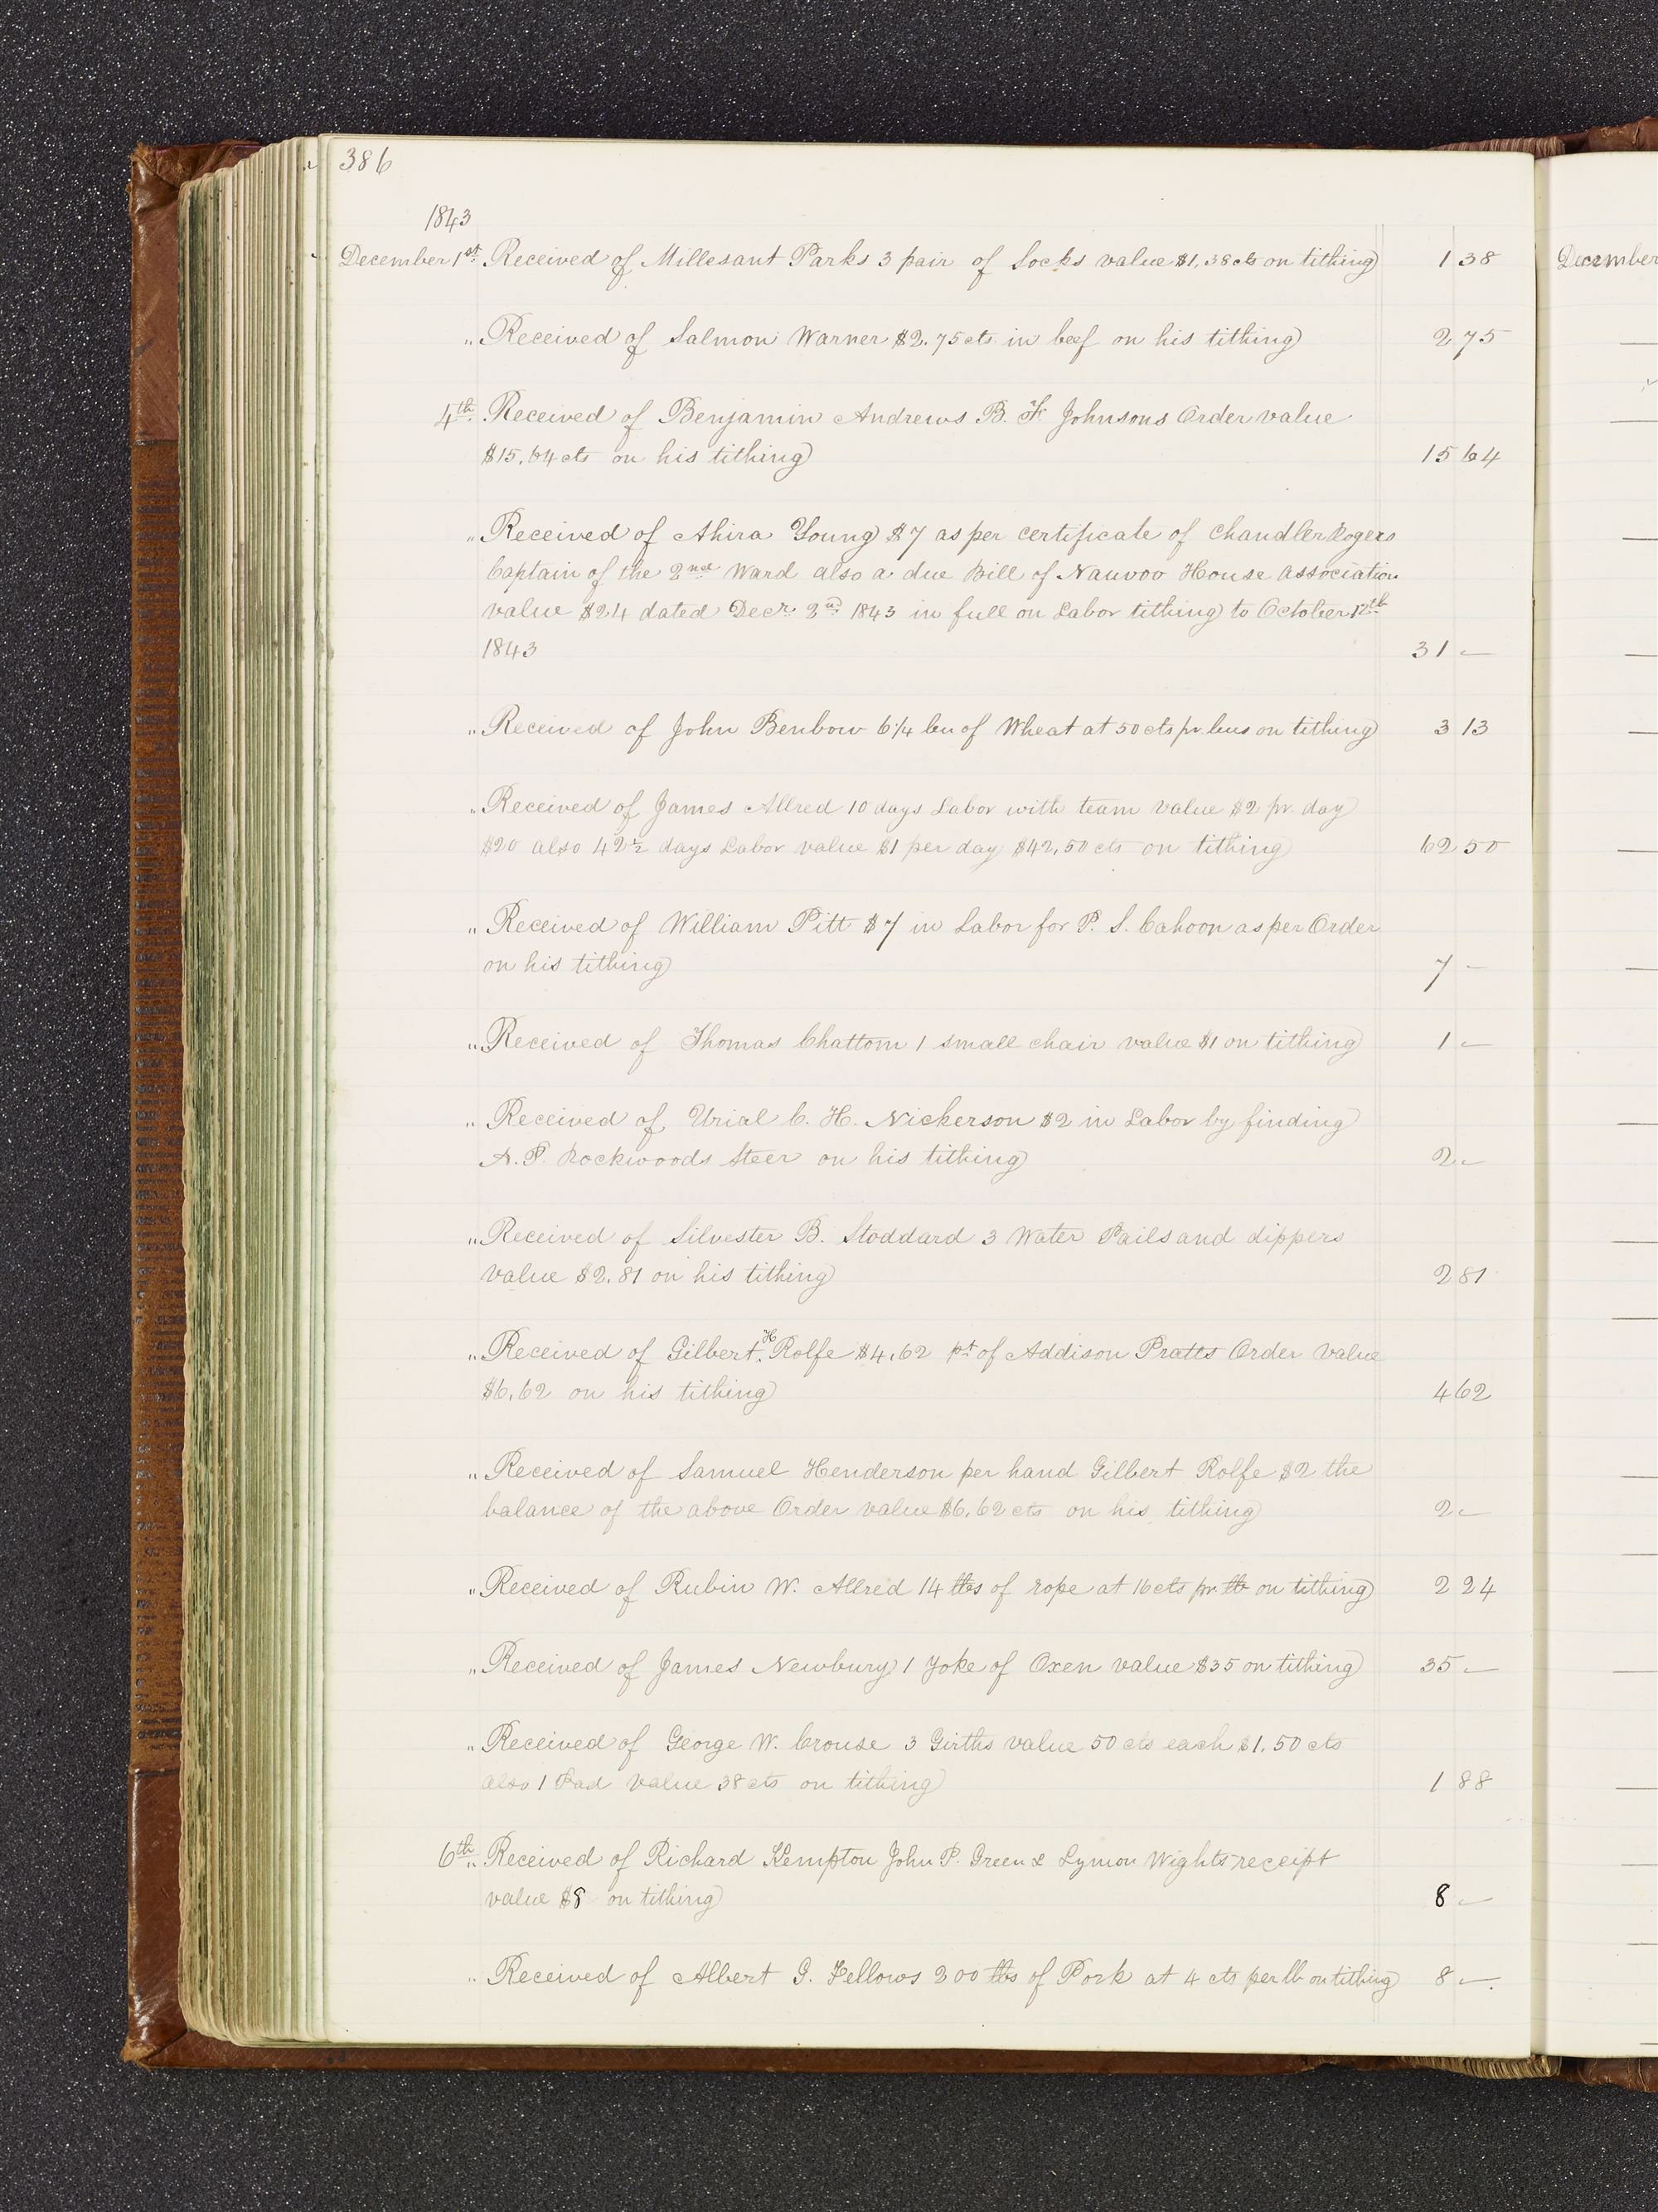 386
1843
December 1st. Received of Millesant Parks 3 pair of Socks value $1,38cts on tithing 1 38
" Received of Salmon Warner $2.75cts in beef on his tithing 2 75
4th. Received of Benjamin Andrews B. F. Johnsons Order value
$15,64cts on his tithing 15 64
" Received of Ahira Young $7 as per certificate of Chandler Rogers
Captain of the 2nd Ward also a due bill of Nauvoo House association
value $24 dated Decr. 2d 1843 in full on Labor tithing to October 12th
1843 31 —
" Received of John Benbow 6 1/4 bu of Wheat at 50 cts pr. bus on tithing 3 13
" Received of James Allred 10 days Labor with team value $2 pr. day
$20 also 42 1/2 days Labor value $1 per day $42,50 cts on tithing 62 50
" Received of William Pitt $7 in Labor for P. S. Cahoon as per Order
on his tithing 7 —
" Received of Thomas Chattom 1 small chair value $1 on tithing 1 —
" Received of Urial C. H. Nickerson $2 in Labor by finding
A. P. Rockwoods Steer on his tithing 2 —
" Received of Silvester B. Stoddard 3 Water Pails and dippers
value $2.81 on his tithing 2 81
" Received of Gilbert. H Rolfe $4,62 pt of Addison Pratts Order value
$6,62 on his tithing 4 62
" Received of Samuel Henderson per hand Gilbert Rolfe $2 the
balance of the above Order value $6,62 cts on his tithing 2 —
" Received of Rubin W. Allred 14 lbs of rope at 16 cts pr. lb on tithing 2 24
" Received of James Newbury 1 Yoke of Oxen value $35 on tithing 35 —
" Received of George W. Crouse 3 Girths value 50 cts each $1.50 cts
also 1 Pad value 38 cts on tithing 1 88
6th " Received of Richard Kempton John P. Green & Lymon Wights receipt
value $8 on tithing 8 —
" Received of Albert G. Fellows 200 lbs of Pork at 4 cts per lb on tithing 8 —.
December